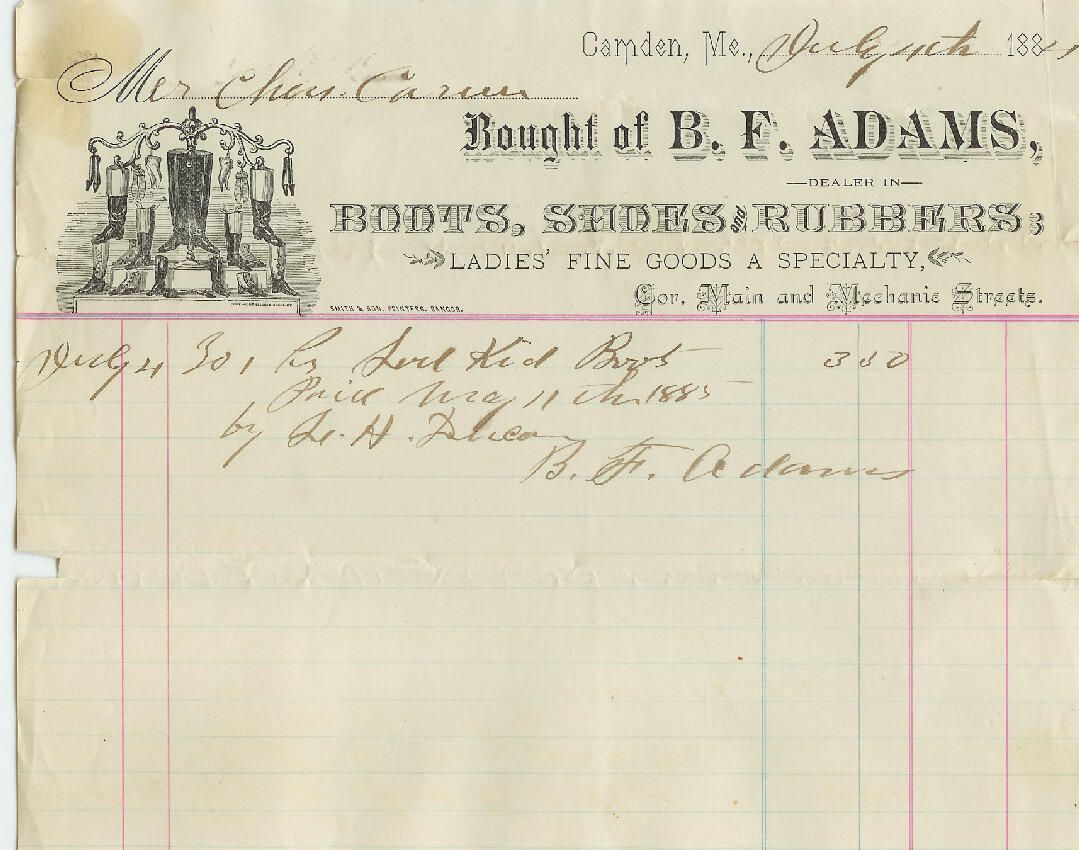 Camden, Me., July 188
Chas.
Bought of B. F. ADAMS,
—DEALER IN—
BOOTS, SHOES AND RUBBERS;
LADIES' FINE GOODS A SPECIALTY,
Cor. Main and Mechanic Streets.
SMITH & SON, PRINTERS, BANGOR.
July 30 1 Kid Boots 3 50
Paid May 11th 1885
by H.
B. F. Adams